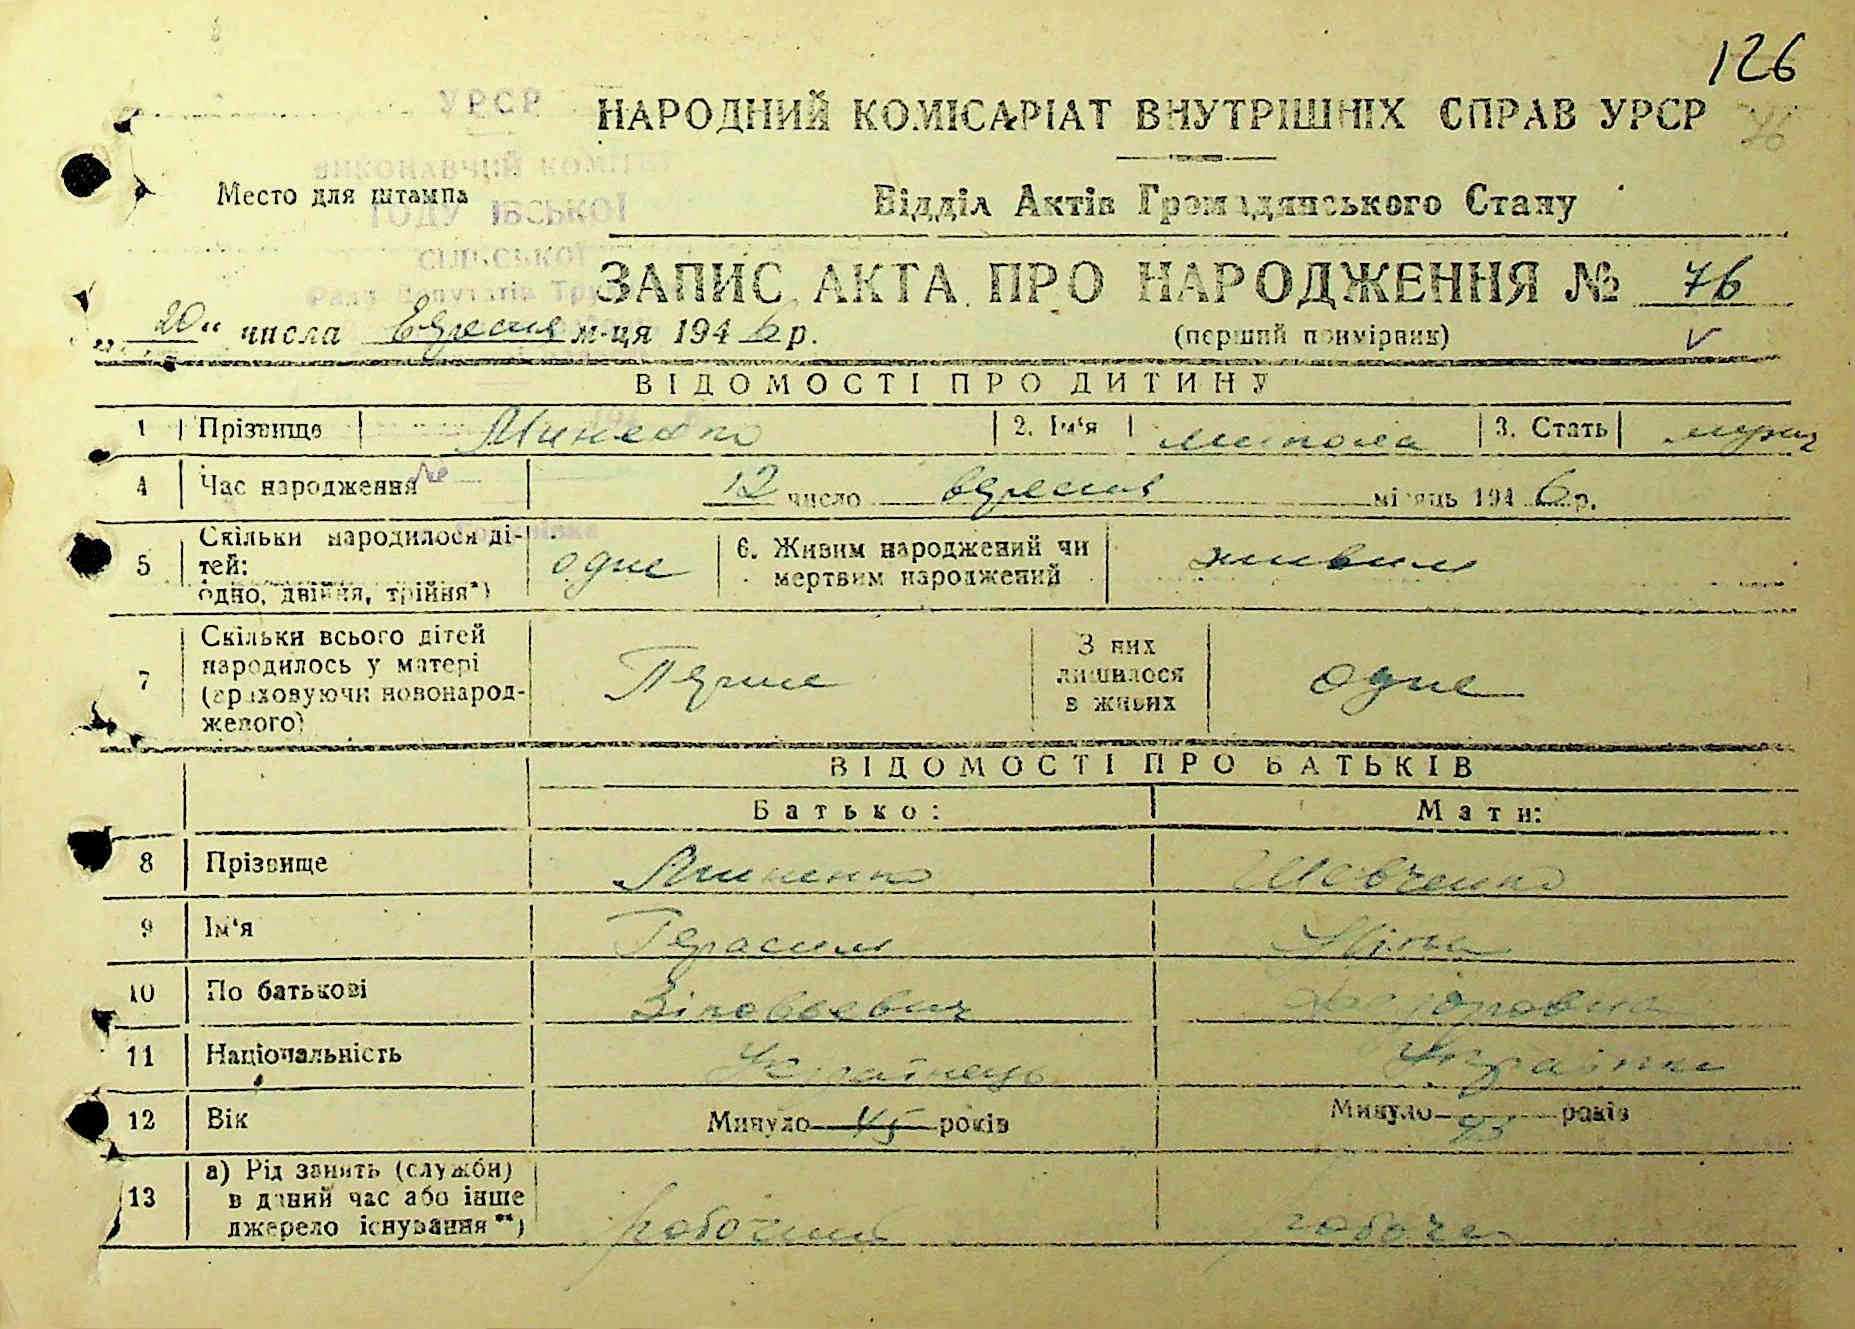 126
УРСР
НАРОДНИЙ КОМІСАРІАТ ВНУТРІШНІХ СПРАВ УРСР
76
ВИКОНАВЧИЙ КОМІТЕТ
Место для штампа
Відділ Актів Громадянського Стану
СІЛЬСЬКОЇ
Ради Депутатів
ЗАПИС АКТА ПРО НАРОДЖЕННЯ № 76
„20“ числа Вересня м-ця 1946 р.
(перший примірник)
ВІДОМОСТІ ПРО ДИТИНУ
1 Прізвище Миненко 2. Ім'я Микола 3. Стать муж
4 Час народження 12 число вересня місяць 1946 р.
5 Скільки народилося дітей: одно, двійня, трійня*) одне 6. Живим народжений чи мертвим народжений живим
7 Скільки всього дітей народилось у матері (враховуючи новонародженого) Перше З них лишилося в живих одне
ВІДОМОСТІ ПРО БАТЬКІВ
Батько: Мати:
8 Прізвище Миненко Шевченко
9 Ім'я Герасим
10 По батькові Федоровна
11 Національність Українець Українка
12 Вік Минуло 45 років Минуло років
13 а) Рід занять (служби) в даний час або інше джерело існування**) робочий робоча